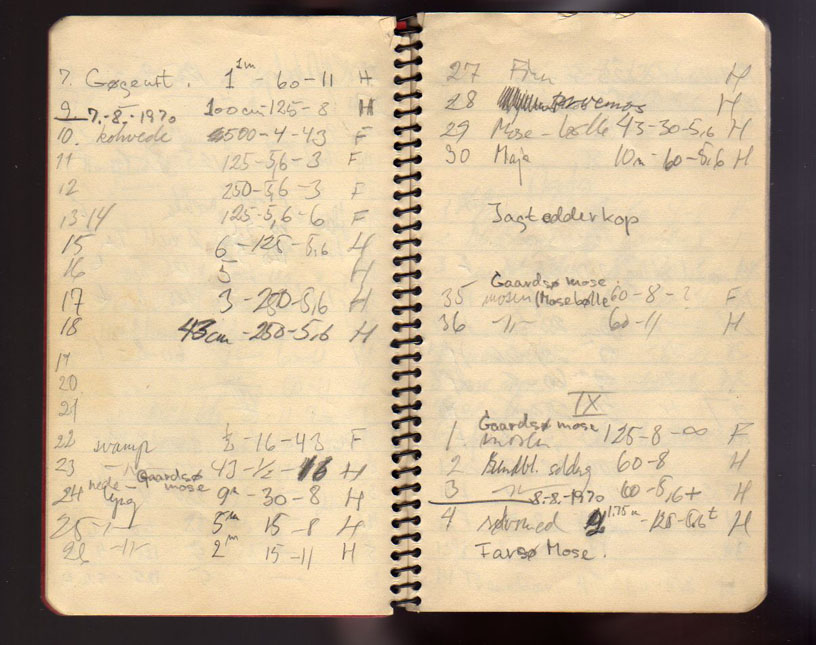 7. Gøgeurt. 1 1m - 60-11 H
9 100cm-125-8 H
7.-8.-1970
10. 500-4-43 F
11 125-5,6-3 F
12 250-5,6-3 F
13-14 125-5,6-6 F
15 6-125-5,6 H
16 5 H
17 3-250-5,6 H
18 43cm-250-5,6 H
19
20
21
22 svamp ½-16-43 F
23 -"- 43-½-16 H
Gaardsø mose
24 hede- lyng 9m-30-8 H
25 -"- 5m 15-8 H
26 -"- 2m 15-11 H
27 H
28 H
29 Mose-bølle 43-30-5,6 H
30 Maja 10m-60-5,6 H
Jagtedderkop
Gaardsø mose.
35 mosen (Mosebølle 60-8-? F
36 -"- 60-11 H
IX
Gaardsø mose
1. mosen 125-8-∞ F
2 Rundbl. soldug 60-8 H
3 -"- 60-5,6+ H
8.-8.-1970
4 1.75m -125-5,6t H
Farsø Mose.